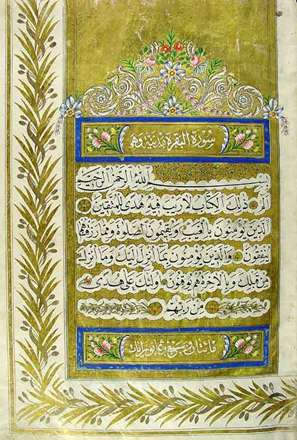 سورة البقرة مدنية وهى
بسم الله الرحمن الرحيم
الم ذلك الكتاب لا ريب فيه هدى للمتقين
الذين يؤمنون بالغيب ويقيمون الصلوة ومما رزقناهم
ينفقون والذين يؤمنون بما انزل اليك وما انزل
من قبلك وبالاخرة هم يوقنون اولئك على هدى
من ربهم
مائتان وست وثمانون اية